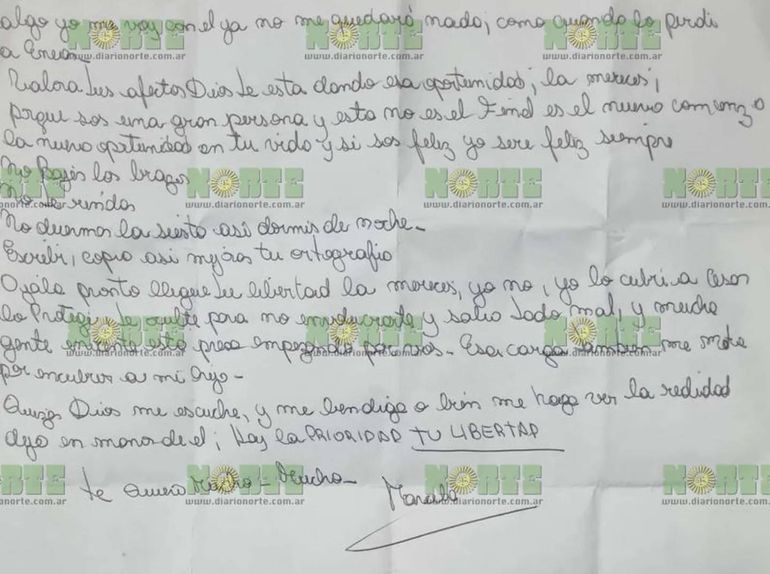 algo yo me voy con el ya no me quedará nada; como cuando lo perdi
a
Valora tus afectos Dios te esta dando esa oportunidad; la mereces;
porque sos una gran persona y esto no es el Find es el nuevo comienzo
la nueva oportunidad en tu vida y si sos feliz yo sere feliz siempre
No Bajes los brazos
No te rindas
No duermas la siesta asi dormis de noche-
Escribi, copia asi mejoras tu ortografia
Ojala pronto llegue tu libertad la mereces, yo no, yo lo cubri a Cesar
lo Protegi te oculte para no involucrarte y salio todo mal, y mucha
gente esta presa empezando por vos- Esa carga me mata
por encubrir a mi hijo-
Quizas Dios me escuche, y me bendiga o bien me haga ver la realidad
dejo en manos de el; hoy la PRIORIDAD TU LIBERTAD
te quiero Mucho- Mucho-
Marcela
NORTE
www.diarionorte.com.ar